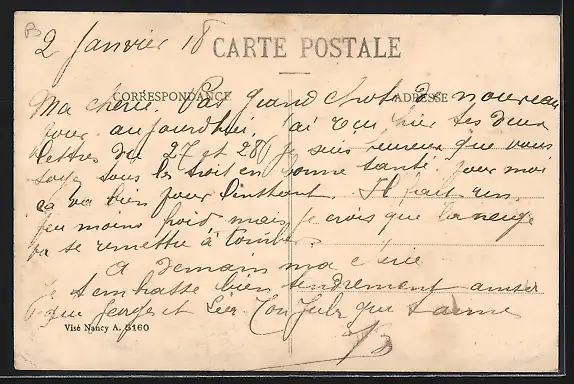 2 Janvier 18
CARTE POSTALE
CORRESPONDANCE
ADRESSE
Ma chérie. Pas grand chose de nouveau
pour aujourdhui. j'ai reçu hier tes deux
lettres du 27 et 28 je suis heureux que vous
soyez tous les trois en bonne santé. pour moi
ça va bien pour l'instant. Il fait un
peu moins froid mais je crois que la neige
va se remettre à tomber.
A demain ma chérie
je t'embrasse bien tendrement ainsi
que Georges et Ton Jules que t'aime
Visé Nancy A. 3160